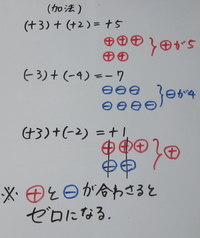 (加法)
(+3)+(+2)=+5
⊕⊕⊕
⊕⊕ }⊕が5
(-3)+(-4)=-7
⊖⊖⊖
⊖⊖⊖⊖ }⊖が4
(+3)+(-2)=+1
⊕⊕⊕
⊖⊖ }⊕
※ ⊕と⊖が合わさると
ゼロになる.